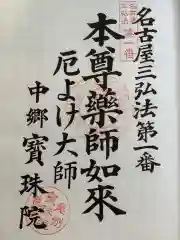 名古屋三弘法第一番
本尊藥師如來
厄よけ大師
中郷寳珠院